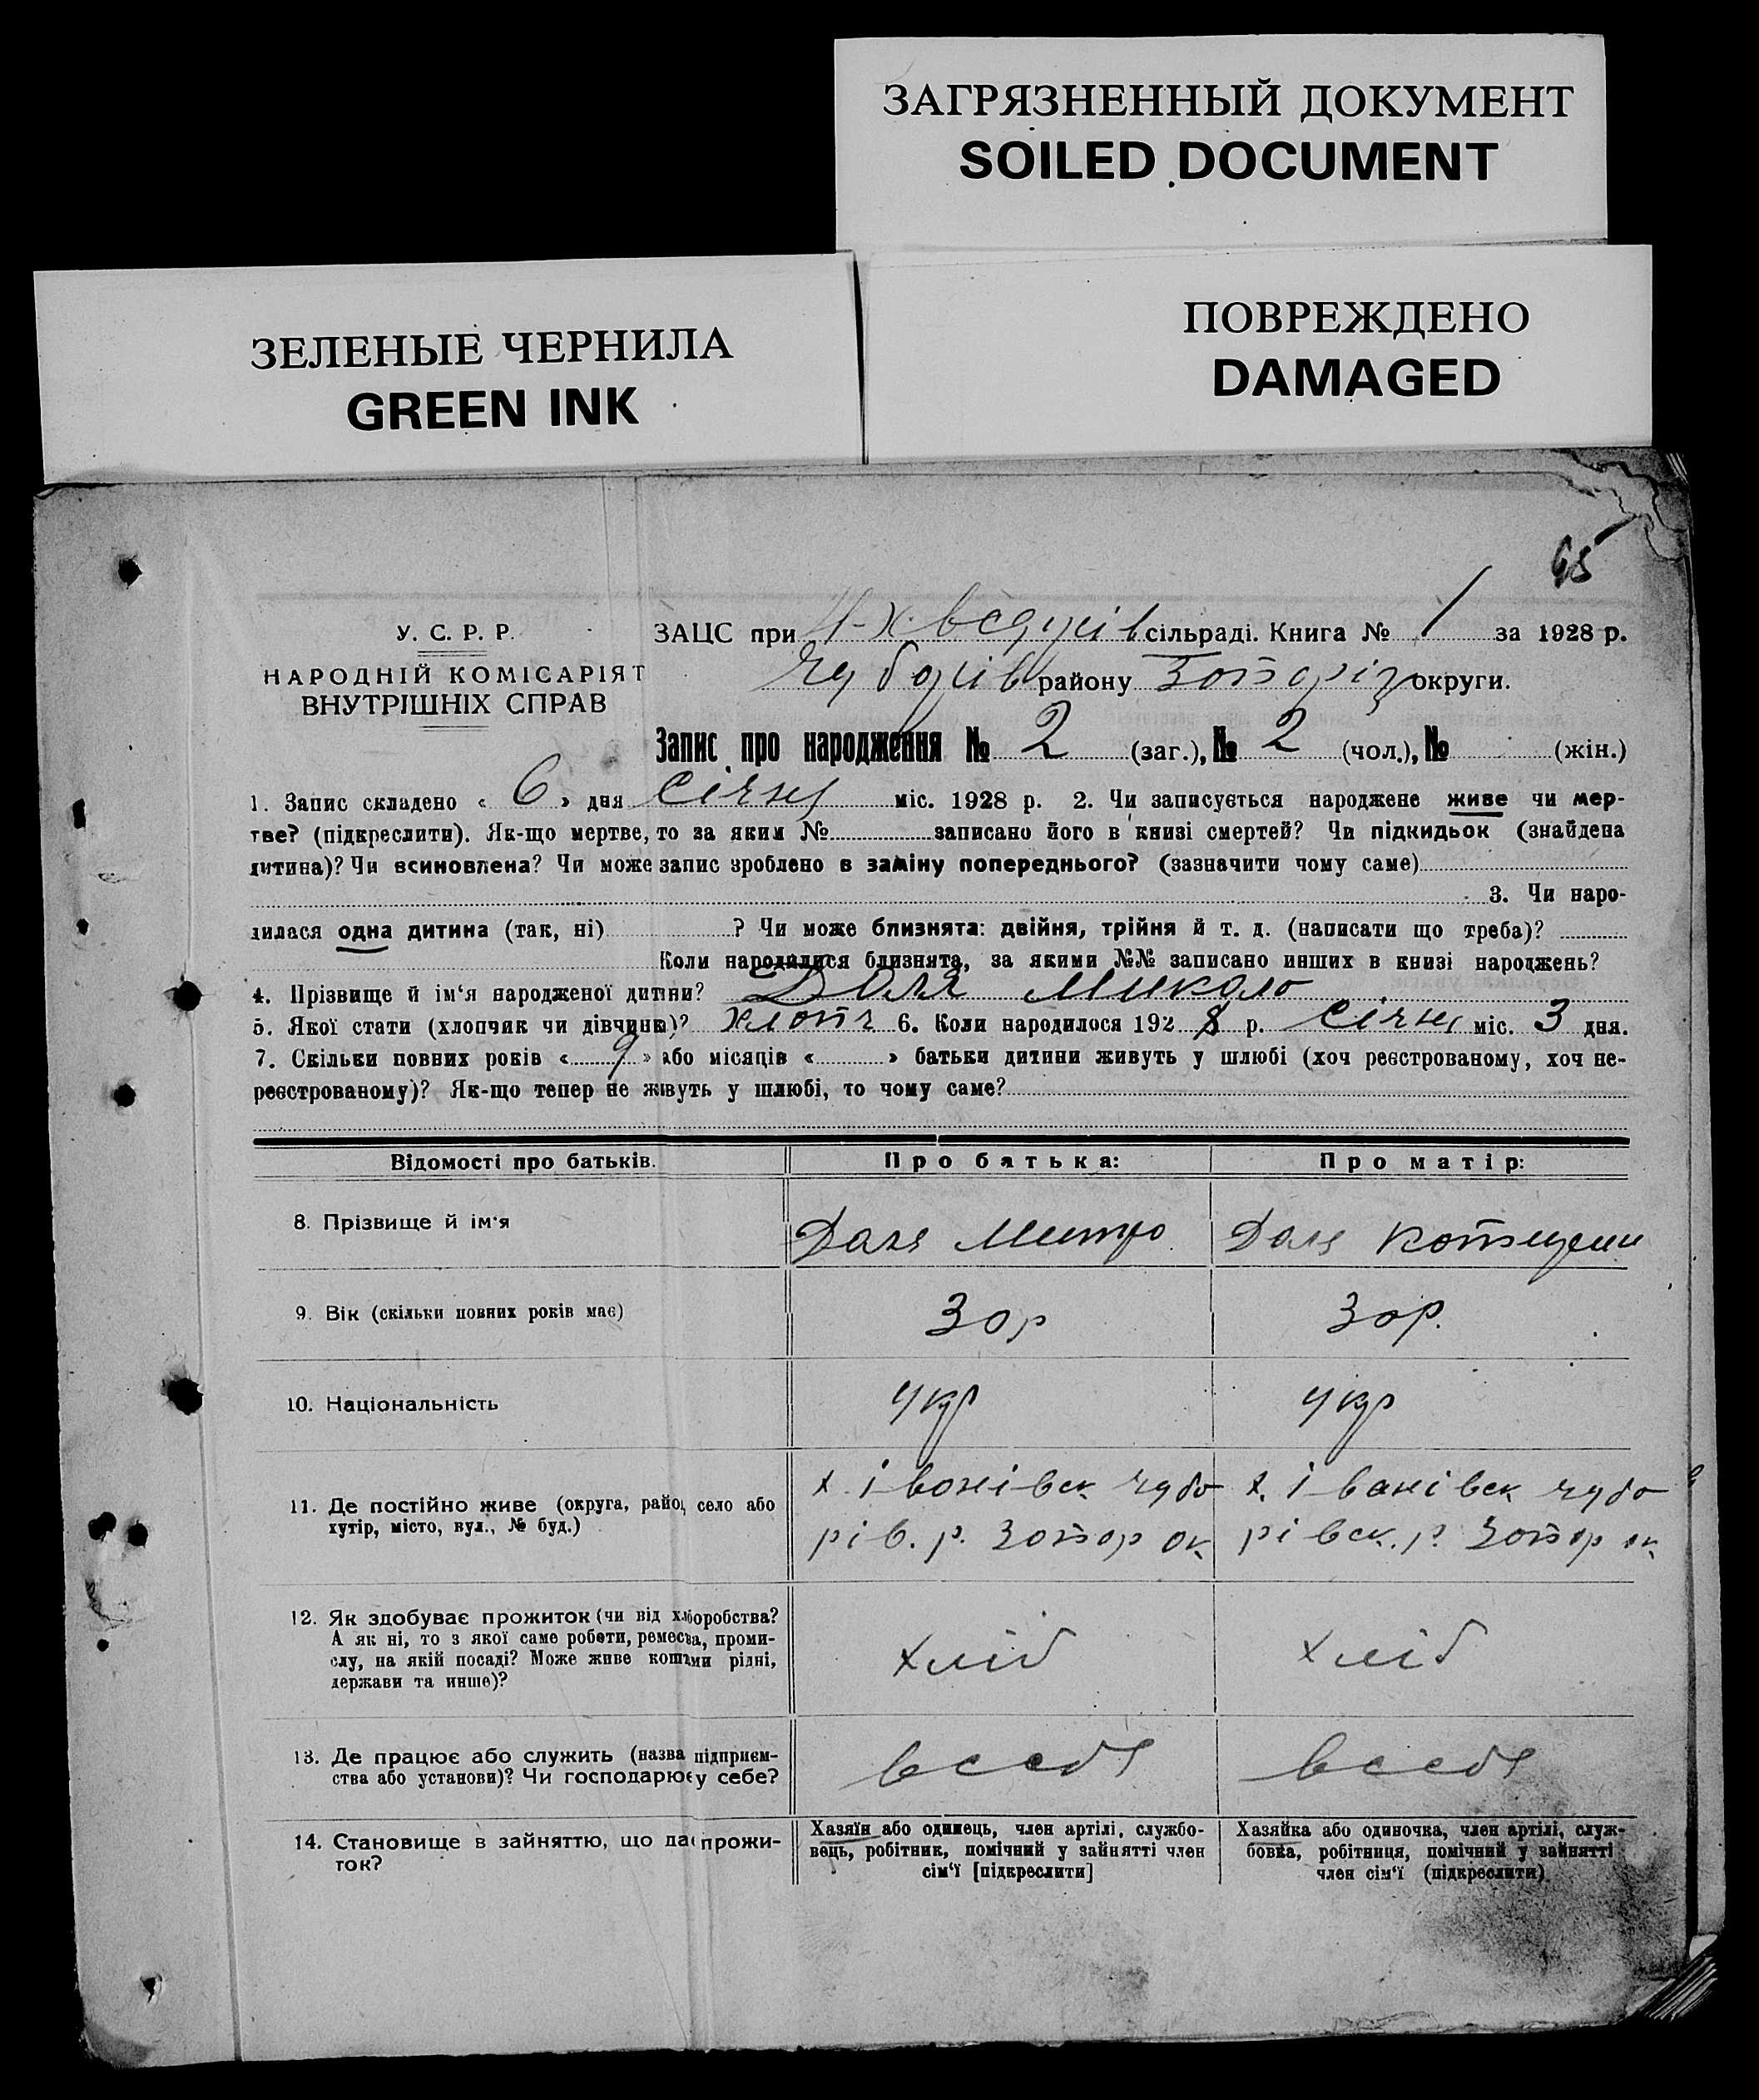 ЗАГРЯЗНЕННЫЙ ДОКУМЕНТ
SOILED DOCUMENT
ЗЕЛЕНЫЕ ЧЕРНИЛА
GREEN INK
ПОВРЕЖДЕНО
DAMAGED
65
У. С. Р. Р.
НАРОДНІЙ КОМІСАРІЯТ
ВНУТРІШНІХ СПРАВ
ЗАЦС при сільраді. Книга № 1 за 1928 р.
Чубарів району Запоріз округи.
Запис про народження № 2 (заг.), № 2 (чол.), № (жін.)
1. Запис складено « 6 » дня Січня міс. 1928 р. 2. Чи записується народжене живе чи мер-
тве? (підкреслити). Як-що мертве, то за яким № записано його в книзі смертей? Чи підкидьок (знайдена
дитина)? Чи всиновлена? Чи може запис зроблено в заміну попереднього? (зазначити чому саме)
3. Чи наро-
дилася одна дитина (так, ні) ? Чи може близнята: двійня, трійня й т. д. (написати що треба)?
Коли народилися близнята, за якими №№ записано инших в книзі народжень?
4. Прізвище й ім‘я народженої дитини? Даля Микола
5. Якої стати (хлопчик чи дівчинка)? хлопч 6. Коли народилося 1928 р. Січня міс. 3 дня.
7. Скільки повних років « 9 » або місяців « » батьки дитини живуть у шлюбі (хоч реєстрованому, хоч не-
реєстрованому)? Як-що тепер не живуть у шлюбі, то чому саме?
Відомості про батьків. Про батька: Про матір:
8. Прізвище й ім‘я Даля Митро Даля
9. Вік (скільки повних років має) 30 р 30 р.
10. Національність Укр Укр
11. Де постійно живе (округа, район, село або х. Іванівск Чуба х. Іванівск Чуба
хутір, місто, вул., № буд.) рів. р. Запор ок рівск. р. Запор ок
12. Як здобуває прожиток (чи від хліборобства?
А як ні, то з якої саме роботи, ремества, проми-
слу, на якій посаді? Може живе коштами рідні, хліб хліб
держави та инше)?
13. Де працює або служить (назва підприєм- всебя всебя
ства або установи)? Чи господарює у себе?
14. Становище в зайняттю, що дає прожи-
ток?
Хазяїн або одинець, член артілі, службо-
вець, робітник, помічний у зайнятті член
сім‘ї [підкреслити]
Хазяйка або одиночка, член артілі, служ-
бовка, робітниця, помічний у зайнятті
член сім‘ї (підкреслити)